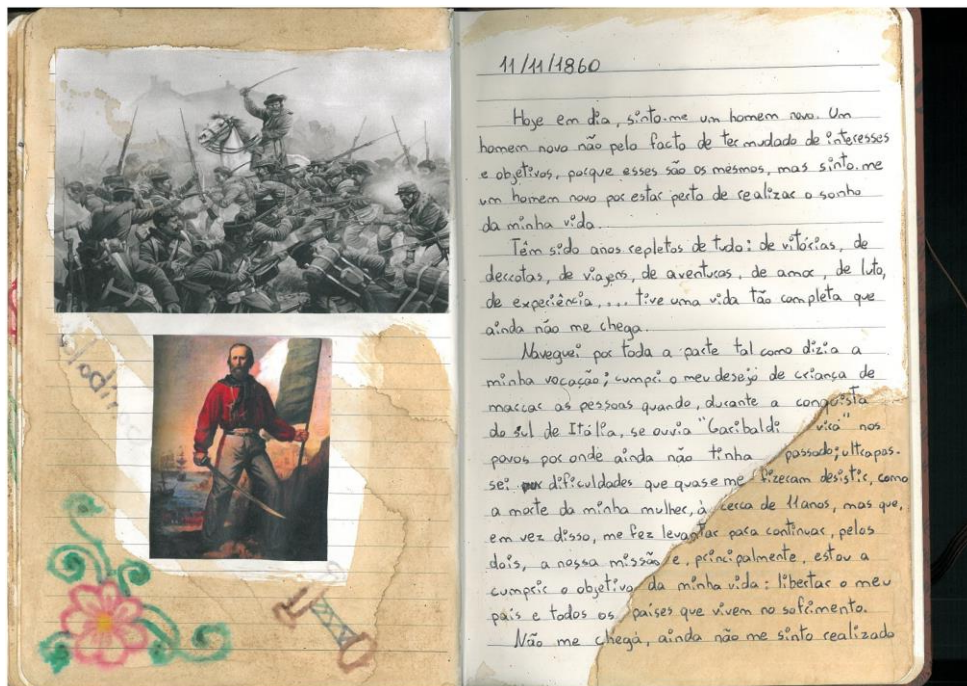 11/11/1860
Hoje em dia, sinto-me um homem novo. Um
homem novo não pelo facto de ter mudado de interesses
e objetivos, porque esses são os mesmos, mas sinto-me
um homem novo por estar perto de realizar o sonho
da minha vida.
Têm sido anos repletos de tudo: de vitórias, de
derrotas, de viagens, de aventuras, de amor, de luto,
de experiência, ... tive uma vida tão completa que
ainda não me chega.
Naveguei por toda a parte tal como dizia a
minha vocação; cumpri o meu desejo de criança de
marcar as pessoas quando, durante a conquista
do sul de Itália, se ouvia "Garibaldi virá" nos
povos por onde ainda não tinha passado; ultrapas-
sei dificuldades que quase me fizeram desistir, como
a morte da minha mulher, à cerca de 11 anos, mas que,
em vez disso, me fez levantar para continuar, pelos
dois, a nossa missão e, principalmente, estou a
cumprir o objetivo da minha vida: libertar o meu
país e todos os países que vivem no sofrimento.
Não me chega, ainda não me sinto realizado